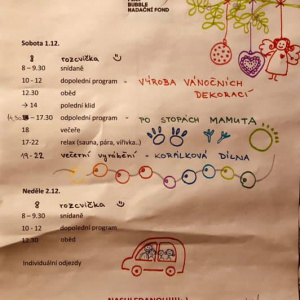 BUBBLE
NADAČNÍ FOND
Sobota 1.12.
8 rozcvička
8 – 9.30 snídaně
10 - 12 dopolední program - VÝROBA VÁNOČNÍCH
DEKORACÍ
12.30 oběd
→ 14 polední klid
– 17.30 odpolední program - PO STOPÁCH MAMUTA
18 večeře
17-22 relax (sauna, pára, vířivka..)
19-22 večerní vyrábění - KORÁLKOVÁ DÍLNA
Neděle 2.12.
8 rozcvička
8 – 9.30 snídaně
10 - 12 dopolední program
12.30 oběd
Individuální odjezdy